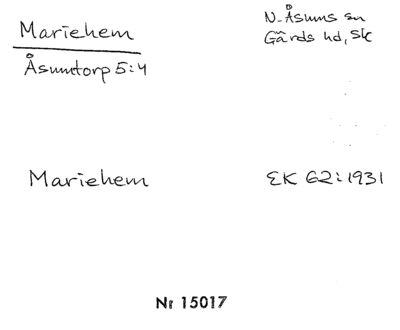 Mariehem
N. Åsums sn
Gärds hd, Sk
Åsumtorp 5:4
Mariehem
EK 62:1931
Nr 15017